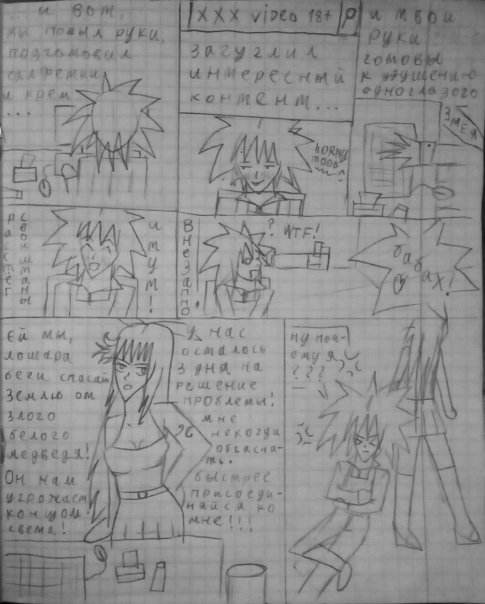 ... и вот,
ты помыл руки,
подготовил
салфетки
и крем
...
XXX video 18+
загуглил
интересный
контент...
и твои
руки
готовы
к удушению
одноглазого
змея
HORNY
MOOD
расстёг
свои штаны
и тут!
Внезапно
?
WTF!
бабах!
Ей ты,
лошара
беги спасать
Землю от
злого
белого
медведя!
Он нам
угрожает
концом
света!
У нас
осталось
3 дня на
решение
проблемы!
мне
некогда
объясня-
ть.
быстрее
присоеди-
няйся ко
мне!!!
ну поч-
ему я
???